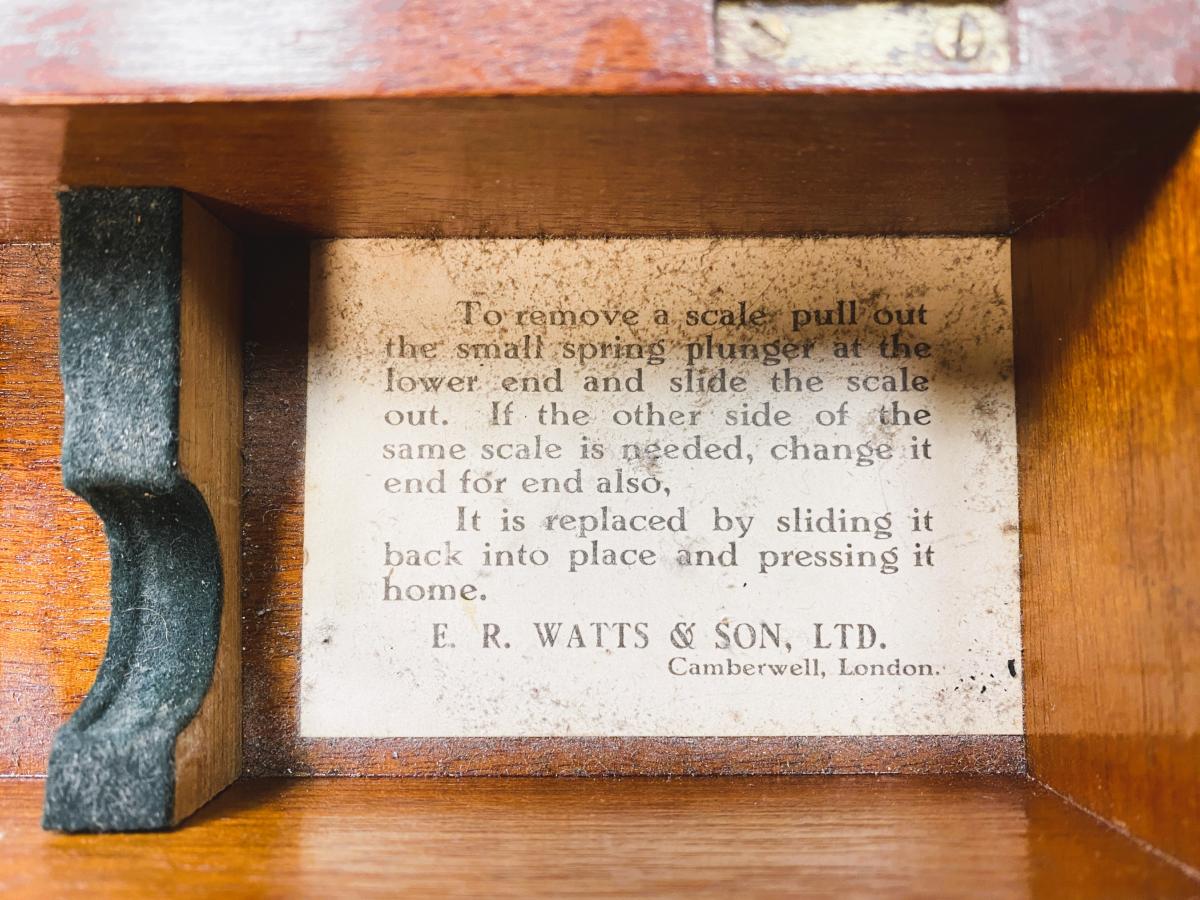 To remove a scale pull out
the small spring plunger at the
lower end and slide the scale
out. If the other side of the
same scale is needed, change it
end for end also,
It is replaced by sliding it
back into place and pressing it
home.
E. R. WATTS & SON, LTD.
Camberwell, London.